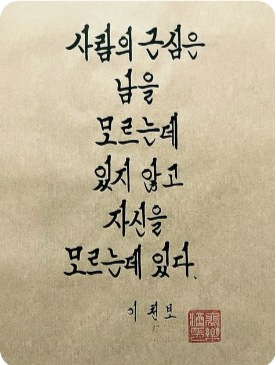 사람의 근심은
남을
모르는데
있지 않고
자신을
모르는데 있다.
이 보